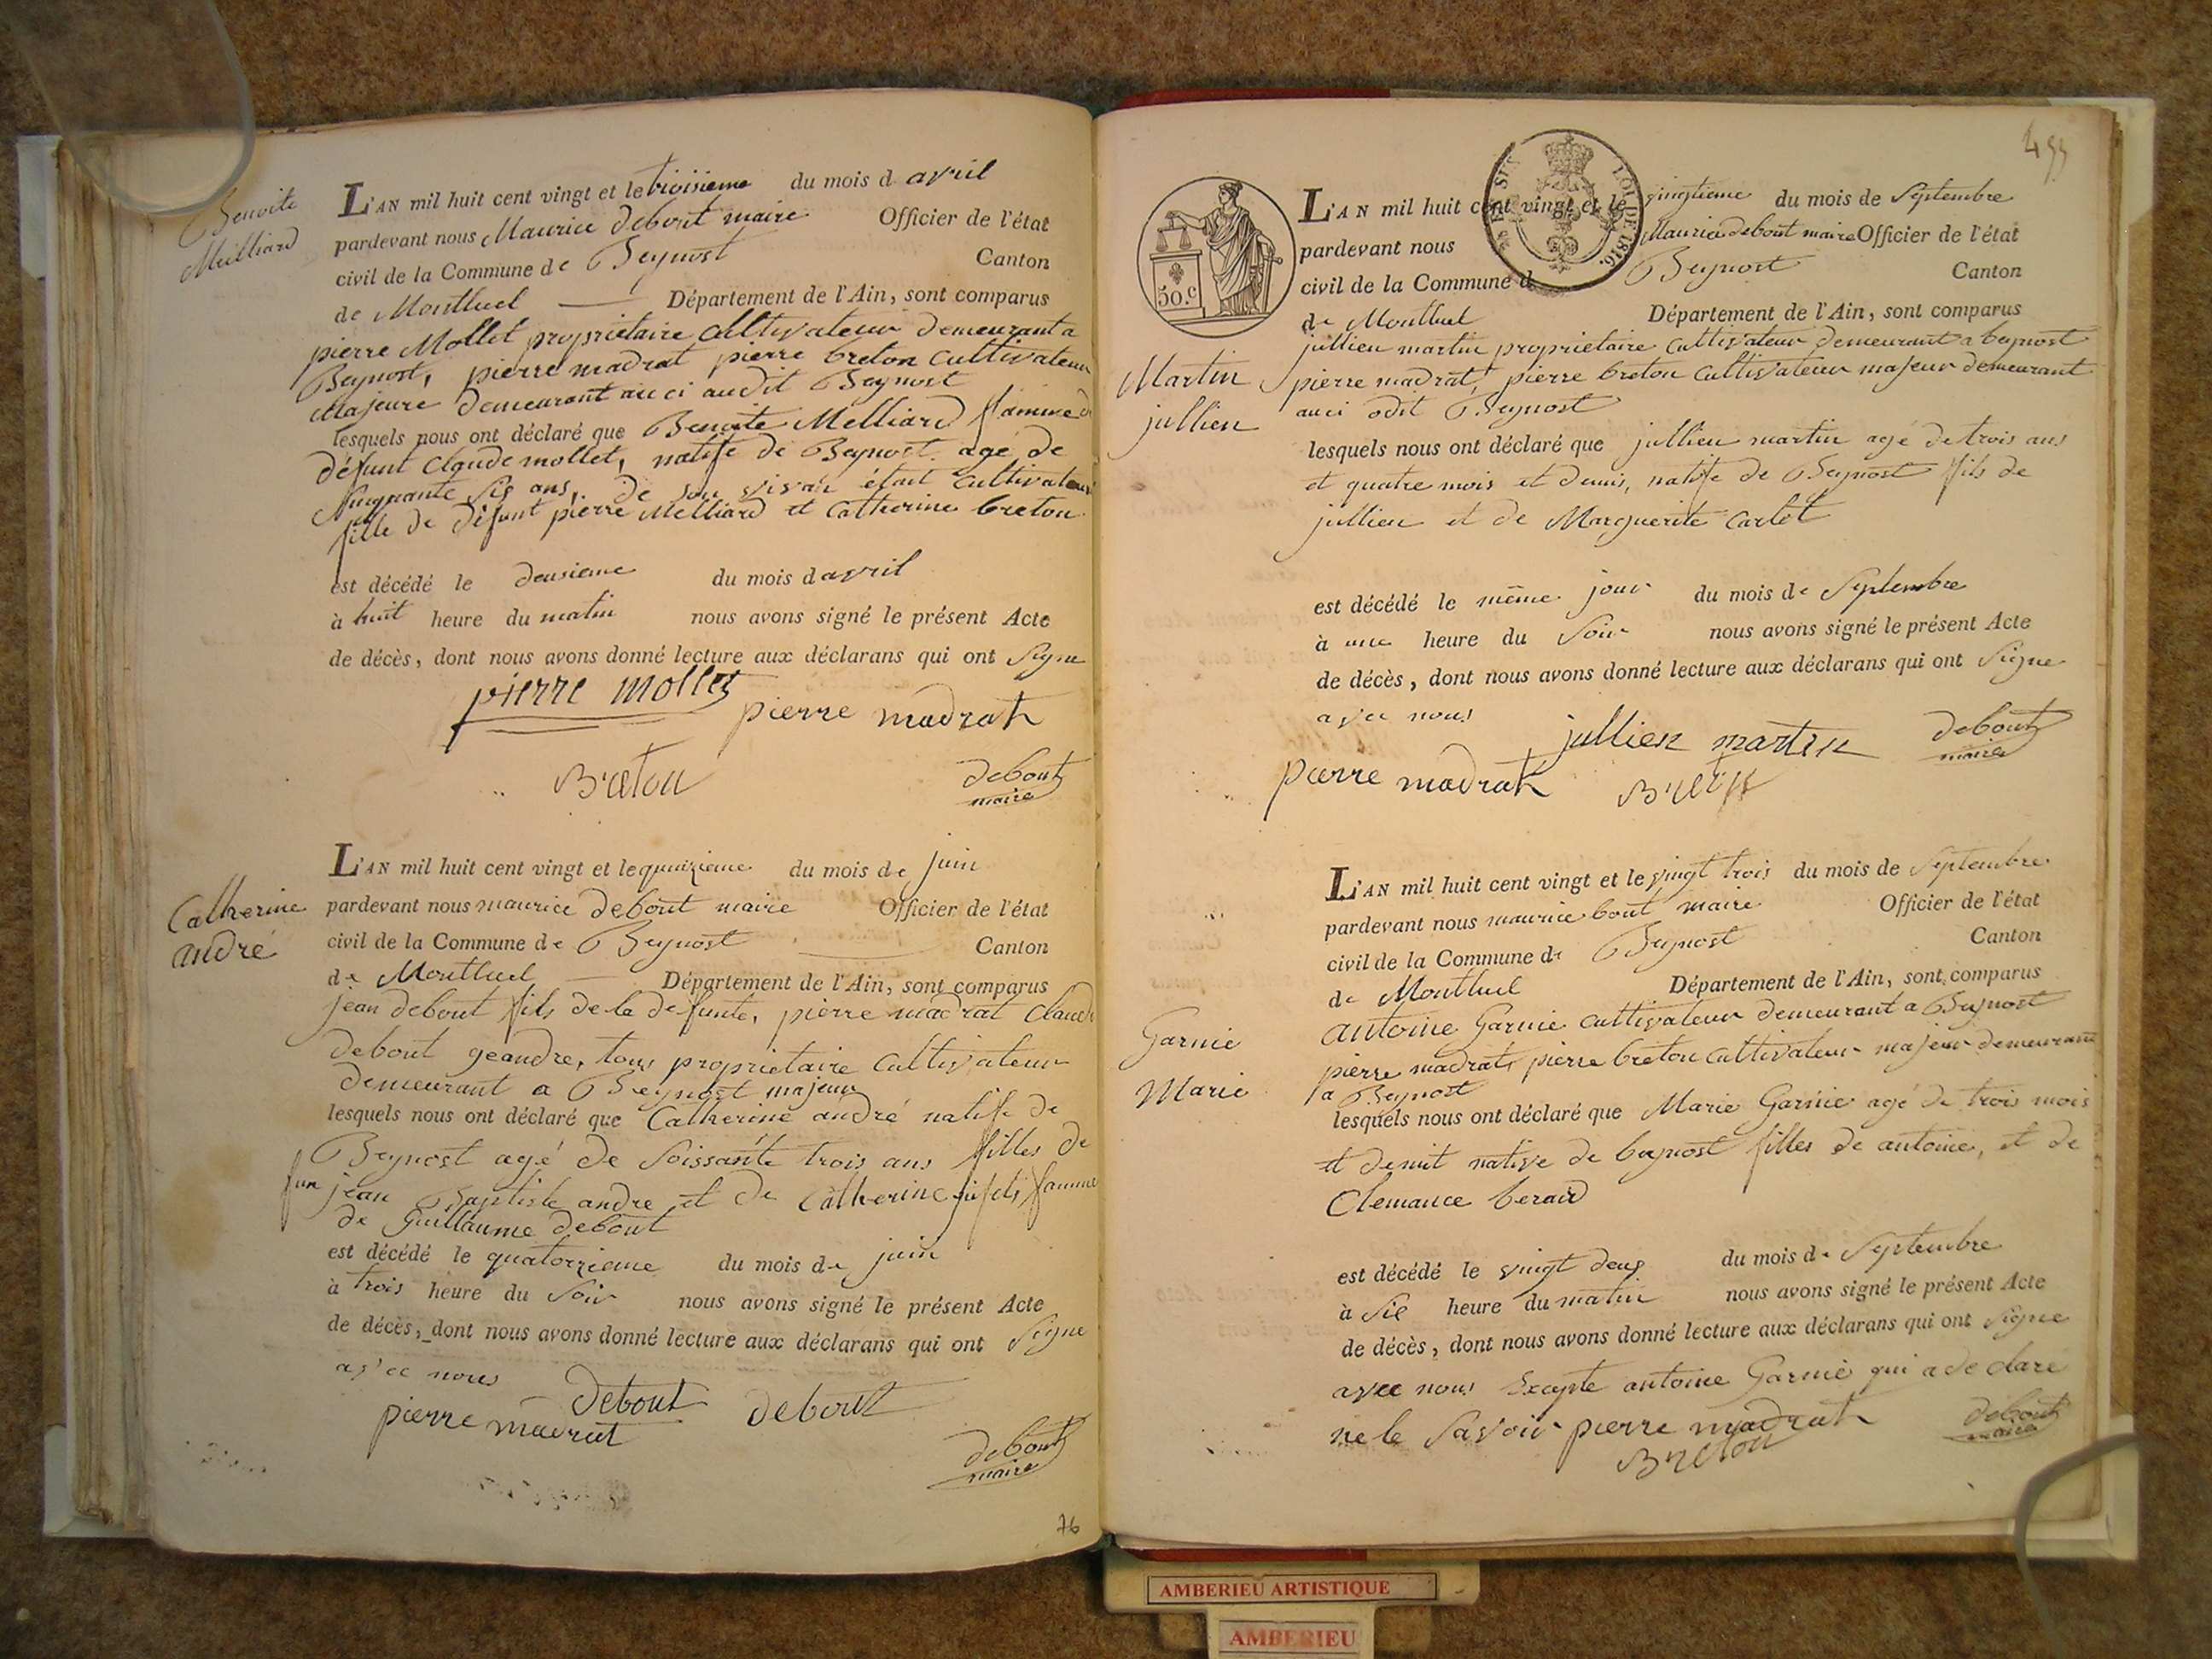 Benoite
Melliard
L'AN mil huit cent vingt et le troisieme du mois d avril
pardevant nous Maurice debout maire Officier de l'état
civil de la Commune de Beynost Canton
de Montluel Département de l'Ain, sont comparus
pierre Mollet proprietaire Cultivateur demeurant a
Beynost, pierre madrat pierre breton Cultivateur
Majeure demeurant auci audit Beynost
lesquels nous ont déclaré que Benoite Melliard famme d
défunt Claude mollet, natife de Beynost agé de
Sinquante sis ans, de son vivan étant Cultivateur
fille de défunt pierre Melliard et Catherine breton
est décédé le deusieme du mois d avril
à huit heure du matin nous avons signé le présent Acte
de décès, dont nous avons donné lecture aux déclarans qui ont Signe
pierre mollet
pierre madrat
Breton debout
maire
Catherine
andré
L'AN mil huit cent vingt et le quinzieme du mois de juin
pardevant nous maurice debout maire Officier de l'état
civil de la Commune de Beynost Canton
de Montluel Département de l'Ain, sont comparus
jean debout fils de la defunte, pierre madrat Claude
debout geandre, tous proprietaire Cultivateur
demeurant a Beynost majeur
lesquels nous ont déclaré que Catherine andré natife de
Beynost agé de Soissante trois ans filles de
fun jean Baptiste andre et de Catherine famme
de Guillaume debout
est décédé le quatorzieme du mois de juin
à trois heure du Soir nous avons signé le présent Acte
de décès, dont nous avons donné lecture aux déclarans qui ont Signe
avec nous
debout debout
pierre madrat
debout
maire
76
499
50.c
LOI DE 1816.
L'AN mil huit cent vingt et le vingtieme du mois de Septembre
pardevant nous Maurice debout maire Officier de l'état
civil de la Commune d Beynost Canton
de Montluel Département de l'Ain, sont comparus
Martin
jullien
jullien martin proprietaire Cultivateur demeurant a beynost
pierre madrat, pierre breton Cultivateur majeur demeurant
auci odit Beynost
lesquels nous ont déclaré que jullien martin agé de trois ans
et quatre mois et demis, natife de Beynost fils de
jullien et de Marguerite Carlot
est décédé le même jour du mois de Septembre
à une heure du Soir nous avons signé le présent Acte
de décès, dont nous avons donné lecture aux déclarans qui ont Signe
avec nous
jullien martin debout
maire
pierre madrat
L'AN mil huit cent vingt et le vingt trois du mois de Septembre
pardevant nous maurice bout maire Officier de l'état
civil de la Commune de Beynost Canton
de Montluel Département de l'Ain, sont comparus
Garnie
Marie
antoine Garnie cultivateur demeurant a Beynost
pierre madrat, pierre breton cultivateur majeur demeurant
a Beynost
lesquels nous ont déclaré que Marie Garnie agé de trois mois
et demit native de beynost filles de antoine, et de
Clemance berard
est décédé le vingt deus du mois de Septembre
à Sie heure du matin nous avons signé le présent Acte
de décès, dont nous avons donné lecture aux déclarans qui ont Signe
avec nous Excepte antoine Garnie qui a de clare
ne le Savoir pierre madrat debout
maire
Breton
AMBERIEU ARTISTIQUE
AMBERIEU